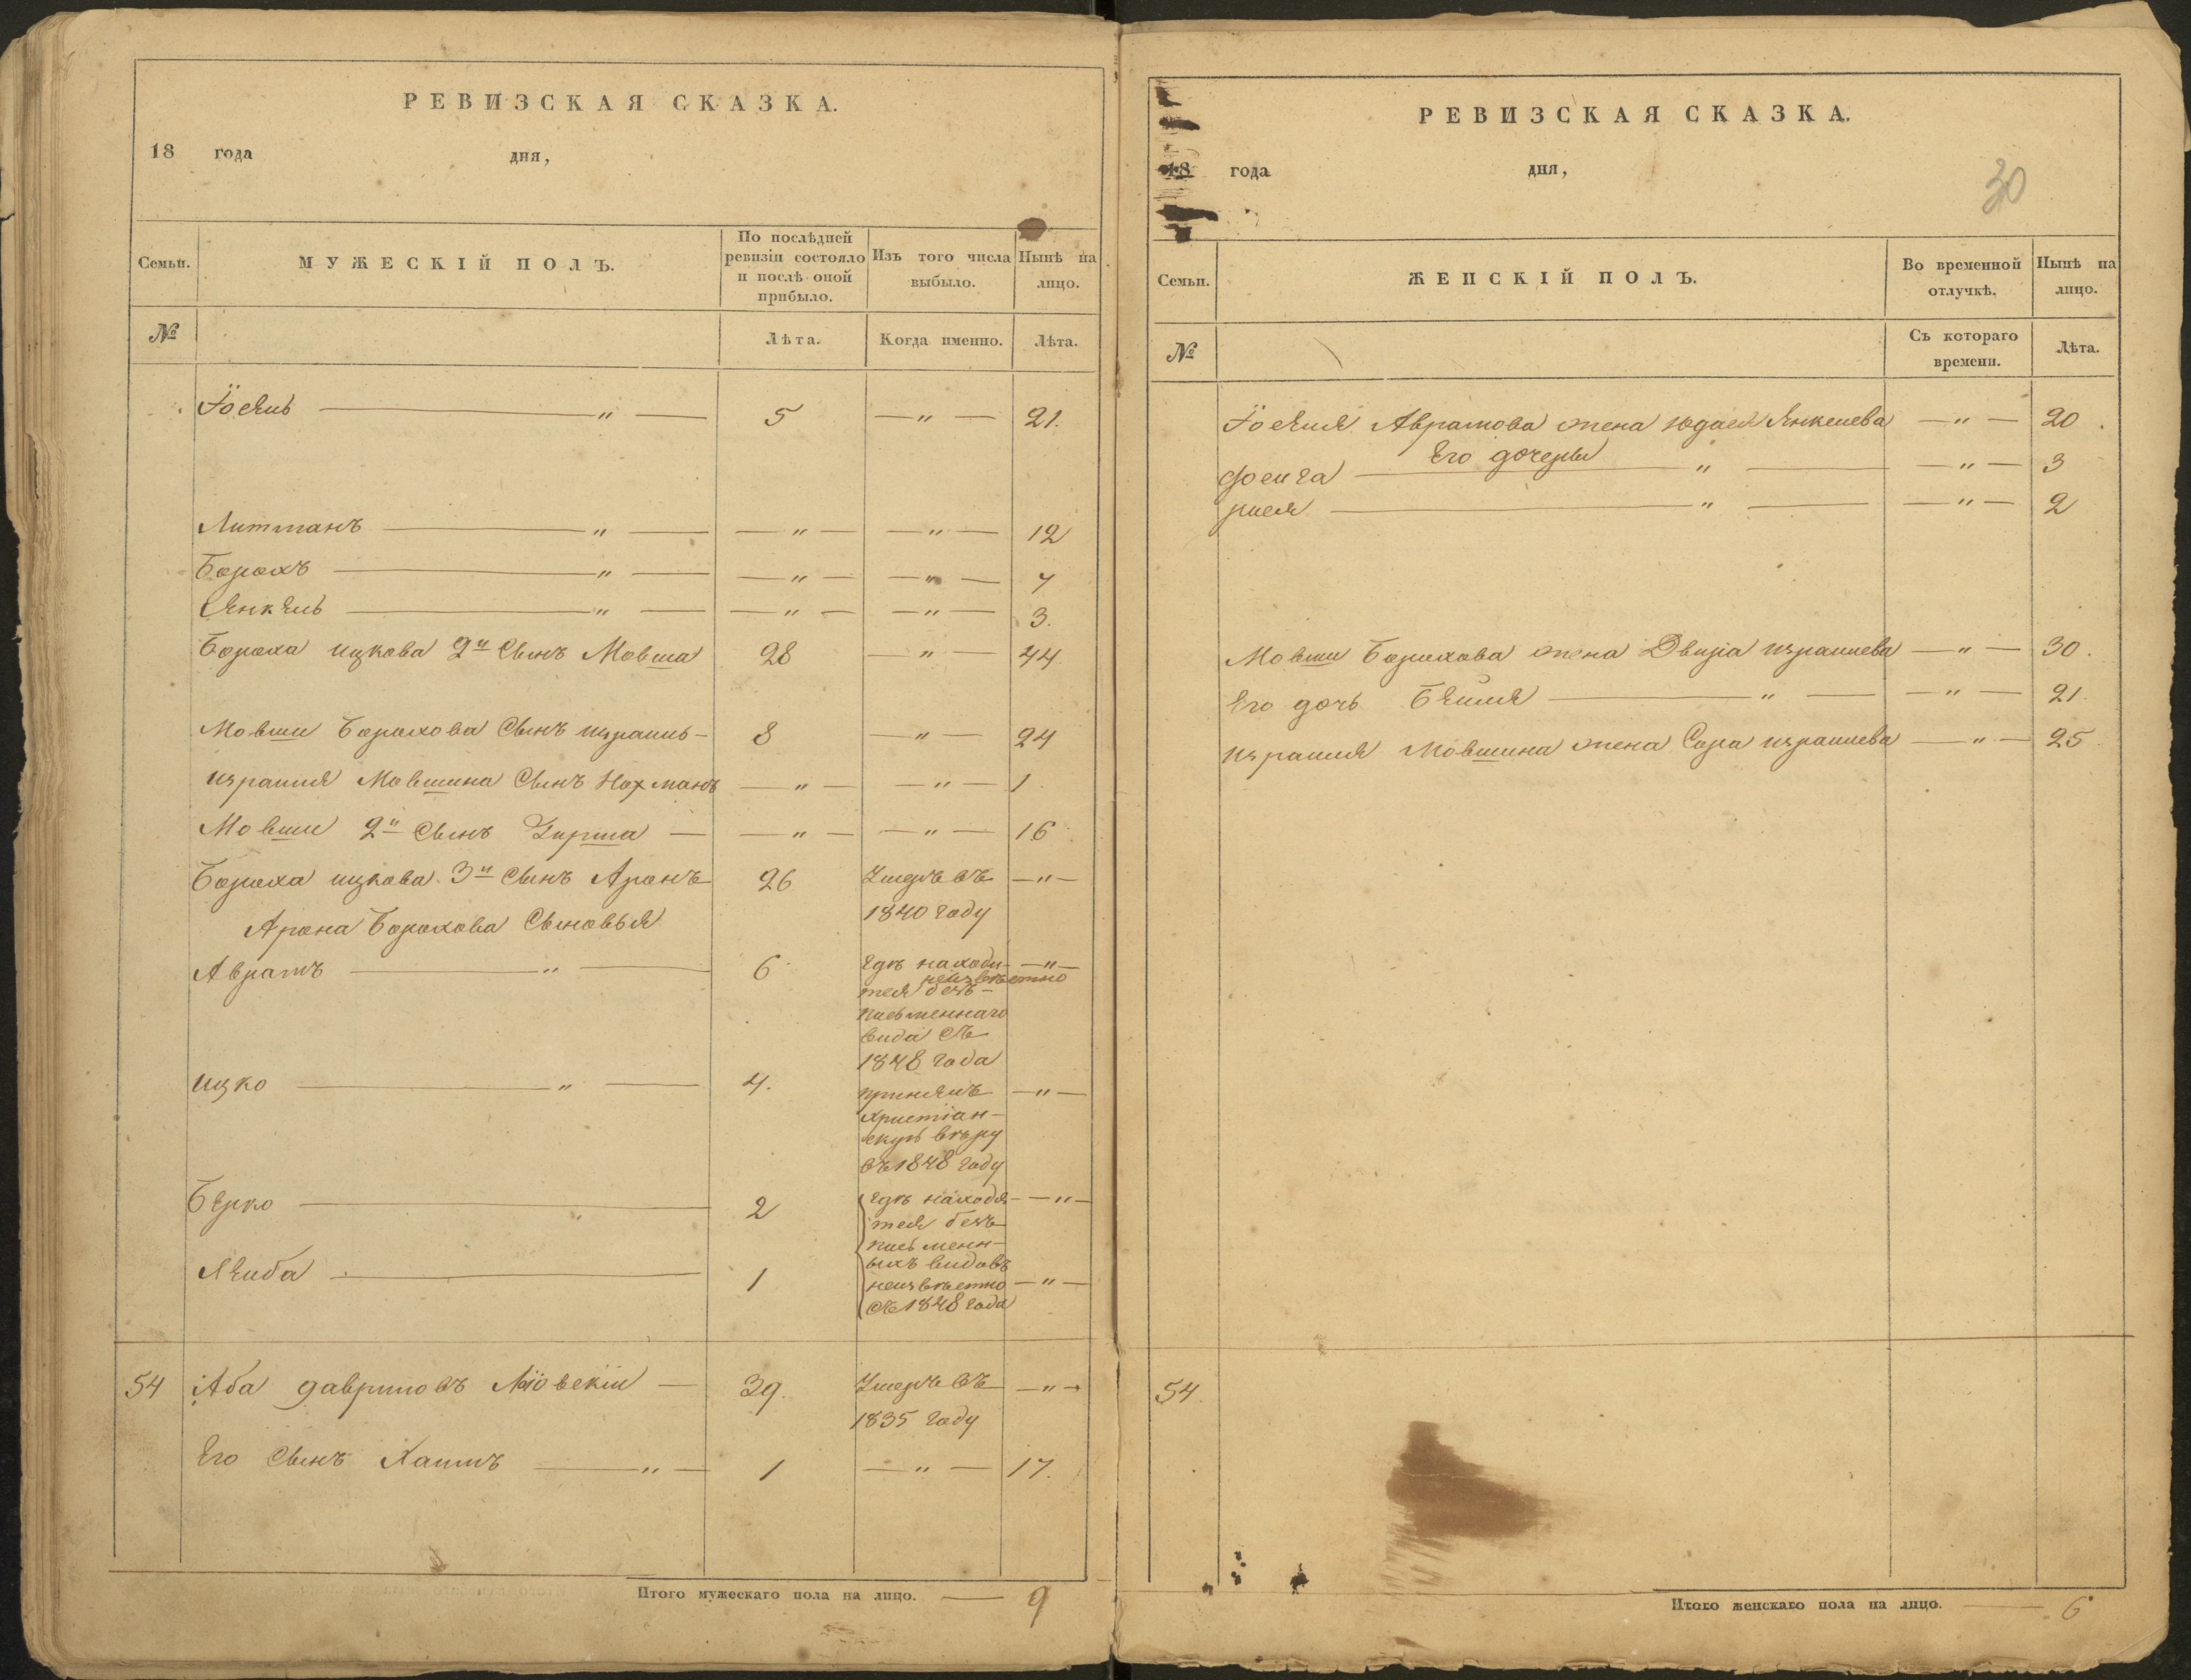 РЕВИЗСКАЯ СКАЗКА.
18 года дня,
Семьи. МУЖЕСКІЙ ПОЛЪ. По послѣдней ревизіи состояло и послѣ оной прибыло. Изъ того числа выбыло. Нынѣ на лицо.
№ Лѣта. Когда именно. Лѣта.
Іосель — " — 5 — " — 21.
Литманъ — " — — " — — " — 12
Борохъ — " — — " — — " — 7
Янкель — " — — " — — " — 3.
Бороха Ицкова 2й Сынъ Мовша 28 — " — 44
Мовши Борохова Сынъ Израиль — 8 — " — 24
Израиля Мовшина Сынъ Нохманъ — " — — " — 1
Мовши 2й Сынъ Гирша — — " — — " — 16
Бороха Ицкова 3й Сынъ Аронъ 26 Умеръ въ — " —
1840 году
Арона Борохова Сыновья
Аврамъ — " — 6 Гдѣ находи- — " —
неизвѣстно
тся безъ-
письменнаго
вида съ
1848 года
Ицко — " — 4. принялъ — " —
христіан-
скую вѣру
въ 1848 году
Берко — " 2 Гдѣ находя- — " —
тся безъ
письменн-
Лейба — 1 ыхъ видовъ
неизвѣстно — " —
съ 1848 года
54 Аба Умеръ въ — " —
39.
1835 году
Его Сынъ Хаимъ — " — 1 — " — 17.
Итого мужескаго пола на лицо. — 9
РЕВИЗСКАЯ СКАЗКА.
18 года дня,
30
Семьи. ЖЕНСКІЙ ПОЛЪ. Во временной отлучкѣ. Нынѣ на лицо.
№ Съ котораго времени. Лѣта.
Іоселя Аврамова жена Юдася Янкелева — " — 20.
Его дочери
Фейга — " — — " — 3
— " — — " — 2
Мовши Борохова жена Двейра Израилева — " — 30.
Его дочь Бейля — " — — " — 21.
Израиля Мовшина жена Сора Израилева — " — 25.
54.
Итого женскаго пола на лицо. — 6